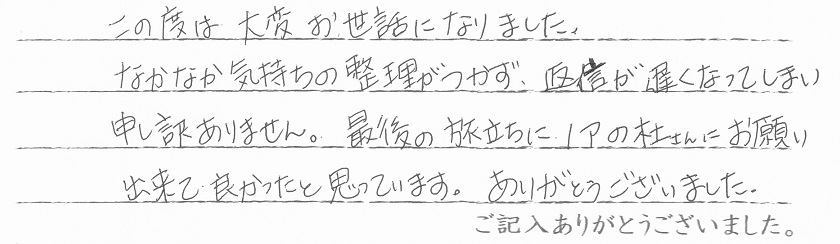 この度は大変お世話になりました.
なかなか気持ちの整理がつかず、返信が遅くなってしまい
申し訳ありません。最後の旅立ちにノアの杜さんにお願い
出来て良かったと思っています。ありがとうございました.
ご記入ありがとうございました。